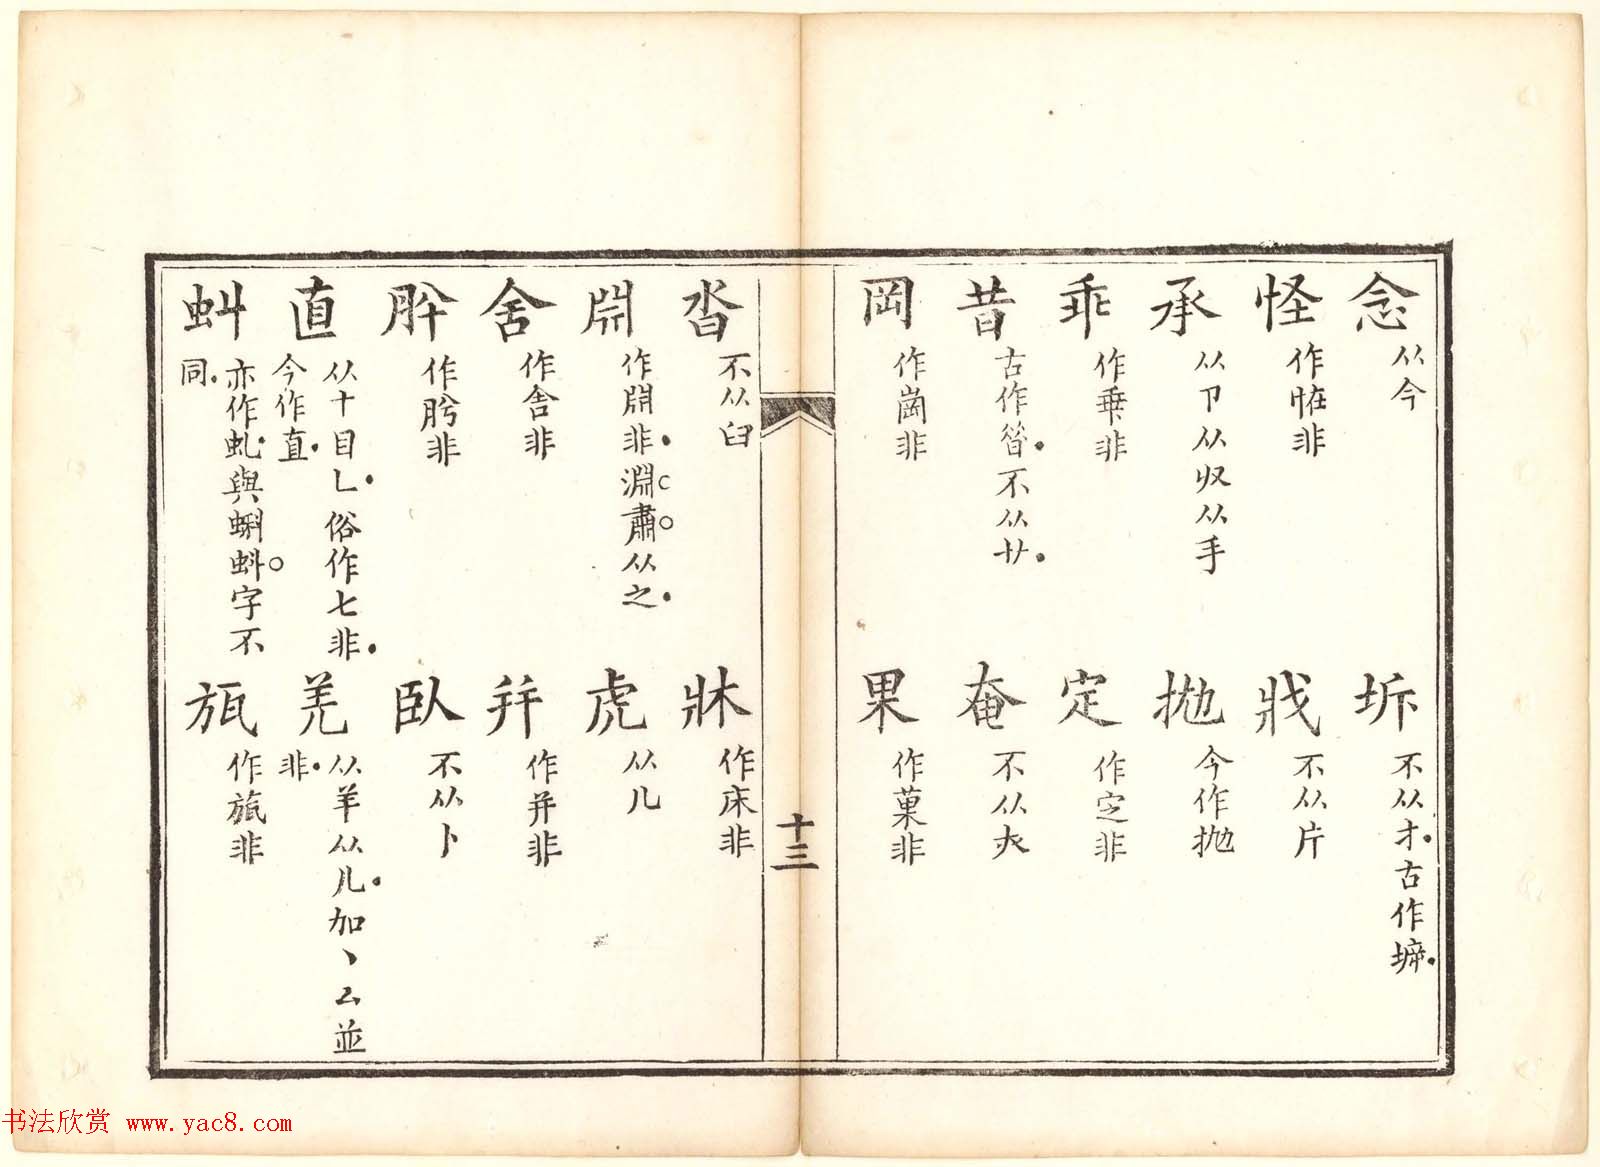 念 从今
坼 不从才古作㙤
怪 作恠非
戕 不从片
承 从卩从収从手
抛 今作拋
乖 作乗非
定 作㝎非
昔 古作㫺不从廿
奄 不从大
岡 作崗非
果 作菓非
十三
沓 不从臼
牀 作床非
淵肅从之
虎 从儿
舍 作舎非
幷 作并非
肸 作肹非
臥 不从卜
直 从十目乚俗作七非
今作直
羌 从羊从儿加丶厶並
非
虯 亦作虬與蝌蚪字不
同
瓬 非
书法欣赏 www.yac8.com